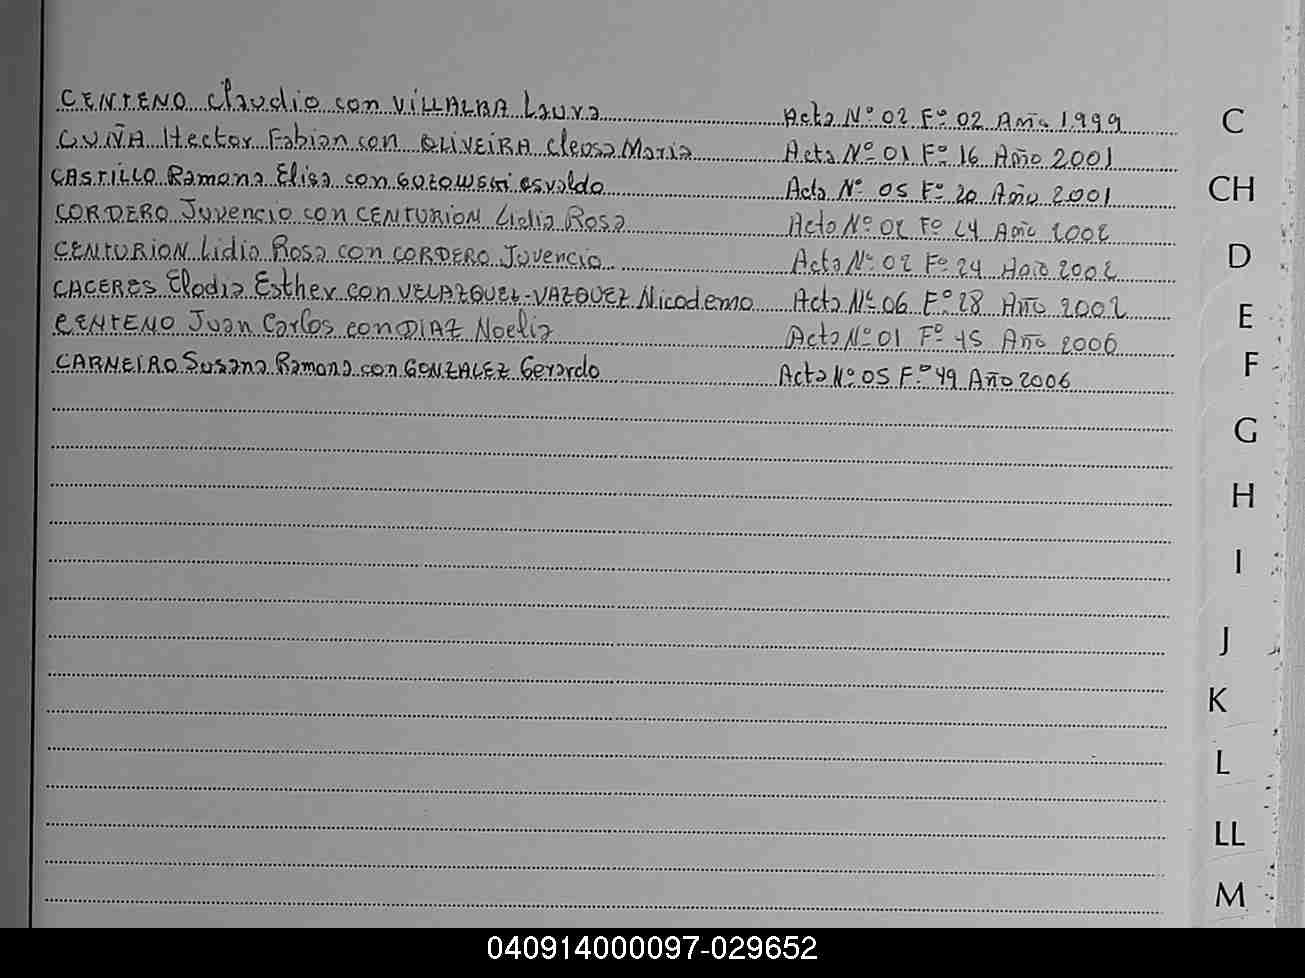 CENTENO Claudio con VILLALBA Laura Acta Nº 02 Fº 02 Año 1999
CUÑA Hector Fabian con OLIVEIRA Cleusa Maria Acta Nº 01 Fº 16 Año 2001
CASTILLO Ramona Elisa con Osvaldo Acta Nº 05 Fº 20 Año 2001
CORDERO Juvencio con CENTURION Lidia Rosa Acta Nº 02 Fº 24 Año 2002
CENTURION Lidia Rosa con CORDERO Juvencio Acta Nº 02 Fº 24 Año 2002
CACERES Eladia Esther con VELAZQUEZ-VAZQUEZ Nicodemo Acta Nº 06 Fº 28 Año 2002
CENTENO Juan Carlos con DIAZ Noelia Acta Nº 01 Fº 45 Año 2006
CARNEIRO Susana Ramona con GONZALEZ Gerardo Acta Nº 05 Fº 49 Año 2006
C
CH
D
E
F
G
H
I
J
K
L
LL
M
040914000097-029652